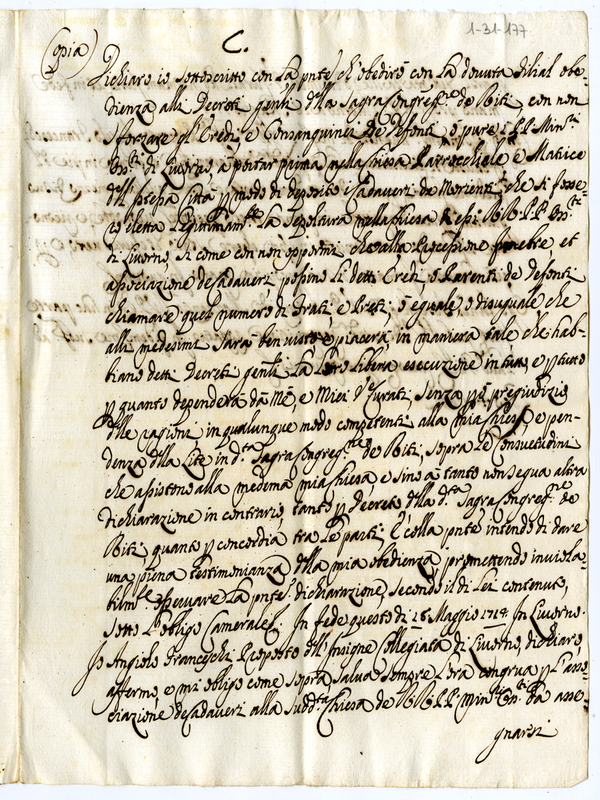 1-31-177
(Copia) C.
Dichiaro io sottoscritto con la pnte, ch'obedirò con la dovuta filial obe-
dienza alli Decreti gen̄li d̄lla Sagra Congreg.ne de Riti, con non
sforzare gl'Eredi, e Consanguinei de Defonti, ò pure i PP. Min.ri
di Livorno, à portar prima nella Chiesa Parrochiale e Matrice
d̄ll'istessa Città p modo di deposito i Cadaveri de Morienti, che si fosse-
ro eletta legittimam.te la Sepoltura nella Chiesa di essi RR. PP.
di Livorno, si come con non oppormi che alla Processione funebre et
associazione de Cadaveri possino li detti Eredi, ò Parenti de Defonti
chiamare quel numero di Frati, e Preti, ò eguale, ò disuguale che
alli medesimi sarà ben visto e piacerà, in maniera tale che hab-
biano detti Decreti gen̄li la loro libera esecuzione in tutto, e p tutto
p quanto dependerà da Me, e Miei Curati, senza però pregiudizio
d̄lle ragioni in qualunque modo competenti alla mia Chiesa, e pen-
denza d̄lla Lite in d.ta Sagra Congreg.ne de Riti, sopra le Consuetudini
che assistono alla medema mia Chiesa, e sino à tanto non segua altra
dichiarazione in contrario, tanto p decreto d̄lla d.ta Sagra Congreg.ne de
Riti, quanto p concordia tra le parti, e colla pnte intendo di dare
una piena testimonianza d̄lla mia obedienza, promettendo inviola-
bilm.te osservare la pnte dichiarazione, secondo il di Lei contenuto,
sotto l'obligo Camerale &c. In fede questo dì 16 Maggio 1714. In Livorno.
Io Angiolo Franceschi Proposto d̄ll'Insigne Collegiata di Livorno, dichiaro,
affermo, e mi obligo come sopra, salva sempre l'ora congrua p l'asso-
ciazione de Cadaveri alla sudd.ta Chiesa de RR. PP. Min.ri da asse-
gnarsi